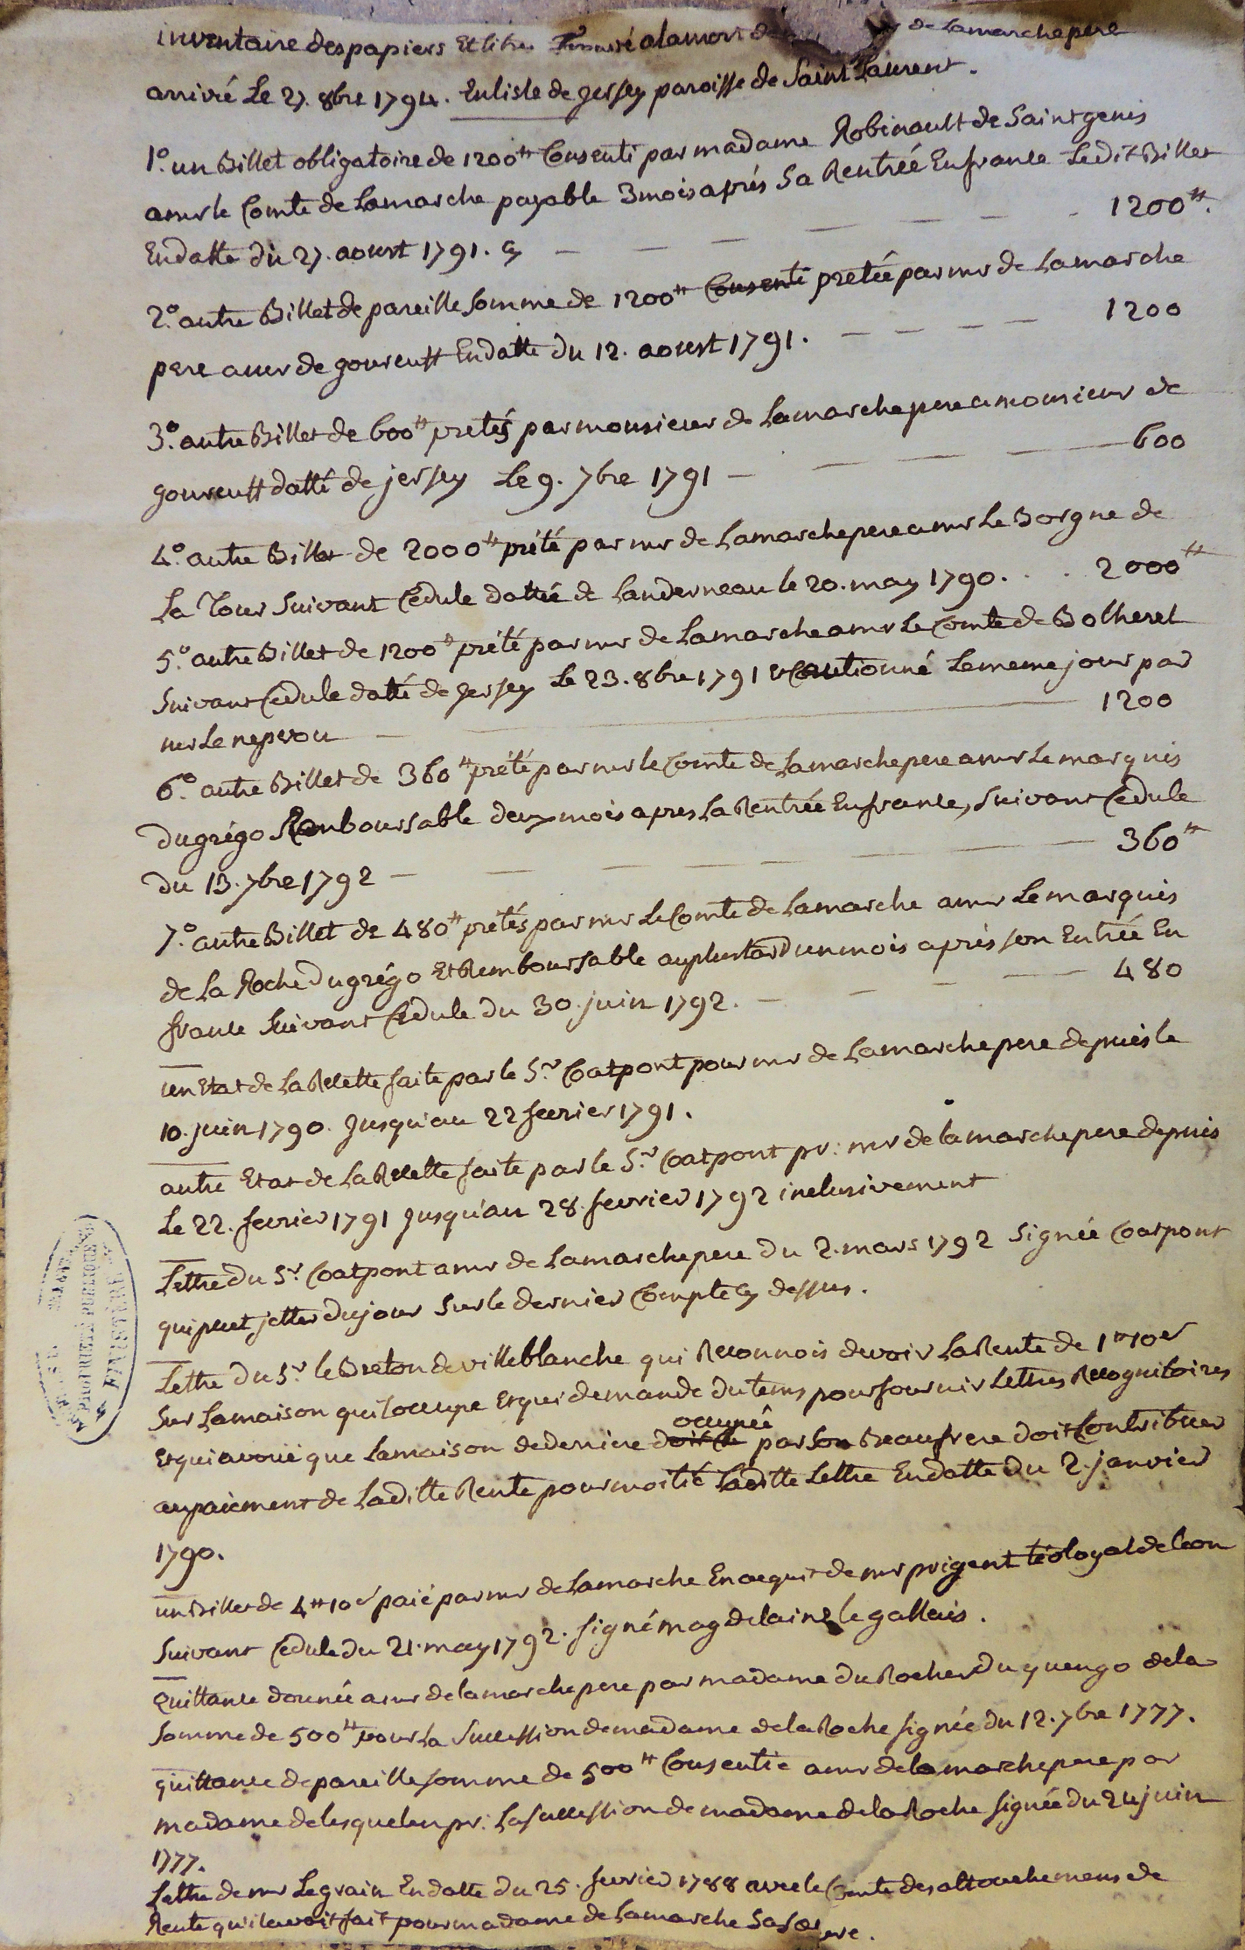 inventaire des papiers Et titres trouvé a la mort de de Lamarche pere
arrivé Le 27. 8bre 1794. En lisle de jersey paroisse de Saint Laurent.
1º. un Billet obligatoire de 1200# Consenti par madame Robinault de Saint genis
a mr le Comte de Lamarche payable 3 mois aprés Sa Rentrée En france Ledit Billet
En datte du 27. aoust 1791. cy — — — — — 1200#.
2º. autre Billet de pareille Somme de 1200# Consenti pretée par mr de Lamarche
pere a mr de gourcuff En datte du 12. aoust 1791. — — — — 1200
3º. autre Billet de 600# pretés par monsieur de Lamarche pere a monsieur de
gourcuff datté de jersey Le 9. 7bre 1791 — — — — 600
4º. autre Billet de 2000# prété par mr de Lamarche pere a mr Le Borgne de
La Tour Suivant Cedule dattée de Landerneau le 20. may 1790. . . 2000#
5º. autre Billet de 1200# prété par mr de Lamarche a mr Le Comte de Botherel
Suivant Cedule datté de jersey Le 23. 8bre 1791 Cautionné Le meme jour par
mr Le nepvou — — 1200
6º. autre Billet de 360# prété par mr le Comte de Lamarche pere a mr Le marquis
Du grégo Remboursable deux mois apres La Rentrée En france, Suivant Cedule
du 13. 7bre 1792 — — — — — 360#
7º. autre Billet de 480# prétés par mr Le Comte de Lamarche a mr Le marquis
de La Roche Du grégo Et Remboursable au plustard un mois aprés son Entrée En
france Suivant Cedule du 30. juin 1792. — — — — 480
un Etat de La Recette faite par le Sr Coatpont pour mr de Lamarche pere depuis le
10. juin 1790. jusqu'au 22 fevrier 1791.
autre Etat de La Recette faite par le Sr Coatpont pr: mr de lamarche pere depuis
Le 22. fevrier 1791 jusqu'au 28. fevrier 1792 inclusivement
Lettre du Sr Coatpont a mr de Lamarche pere du 2. mars 1792 Signée Coatpont
qui peut jetter du jour Sur le dernier Compte cy dessus.
Lettre du Sr le Breton de villeblanche qui Reconnois devoir La Rente de 1# 10s
Sur La maison qu'il occupe Et qui demande du tems pour fournir Lettres Recognitoires
Et qui avoüe que La maison de derriere occupée par Son Beaufrere doit Contribuer
au paiement de Laditte Rente pour moitié Laditte Lettre En datte du 2. janvier
1790.
un Billet de 4# 10s paié par mr de Lamarche En acquit de mr prigent téologal de Leon
Suivant Cedule du 21. may 1792. signé magdelaine le gallais.
Quittance donnée a mr de lamarche pere par madame du Rocher du quengo de la
Somme de 500# pour La Succession de madame de la Roche signée du 12. 7bre 1777.
quittance de pareille somme de 500# Consentie a mr de la marche pere par
madame de lesquelen pr: La succession de madame de la Roche signée du 24 juin
1777.
Lettre de mr Legrain En datte du 25. fevrier 1788 avec le Compte des attouchemens de
Rente qu'il avoit fait pour madame de Lamarche Sa
PROPRIÉTÉ PUBLIQUE
FINISTÈRE